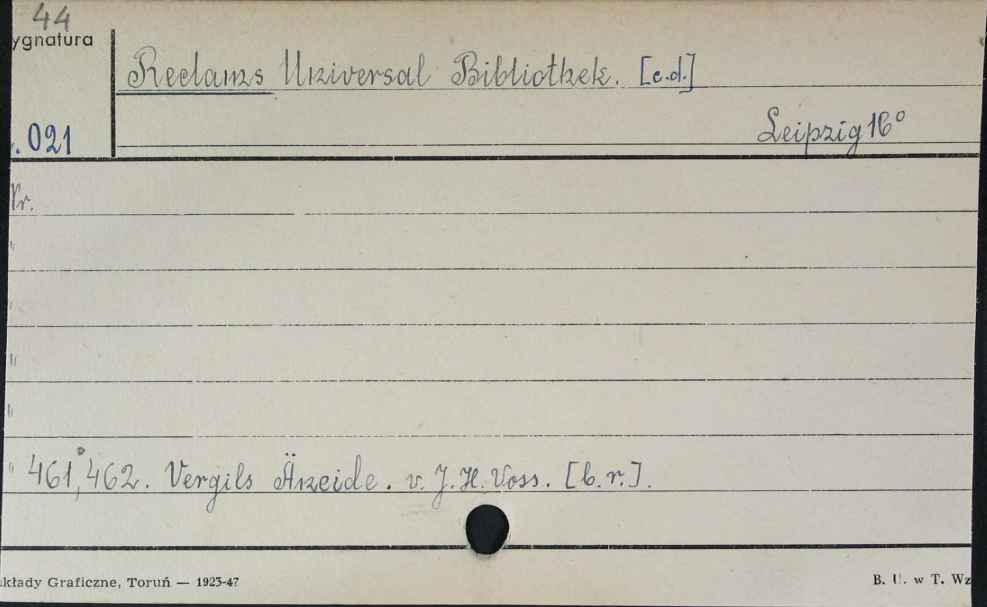 44
ygnatura
Reclams Universal Bibliothek. [c.d.]
Leipzig 16°
.021
Nr.
"
"
"
"
" 461, 462. Vergils Äneide. v. J. H. Voss. [b. r.].
kłady Graficzne, Toruń — 1923-47
B. U. w T. Wz